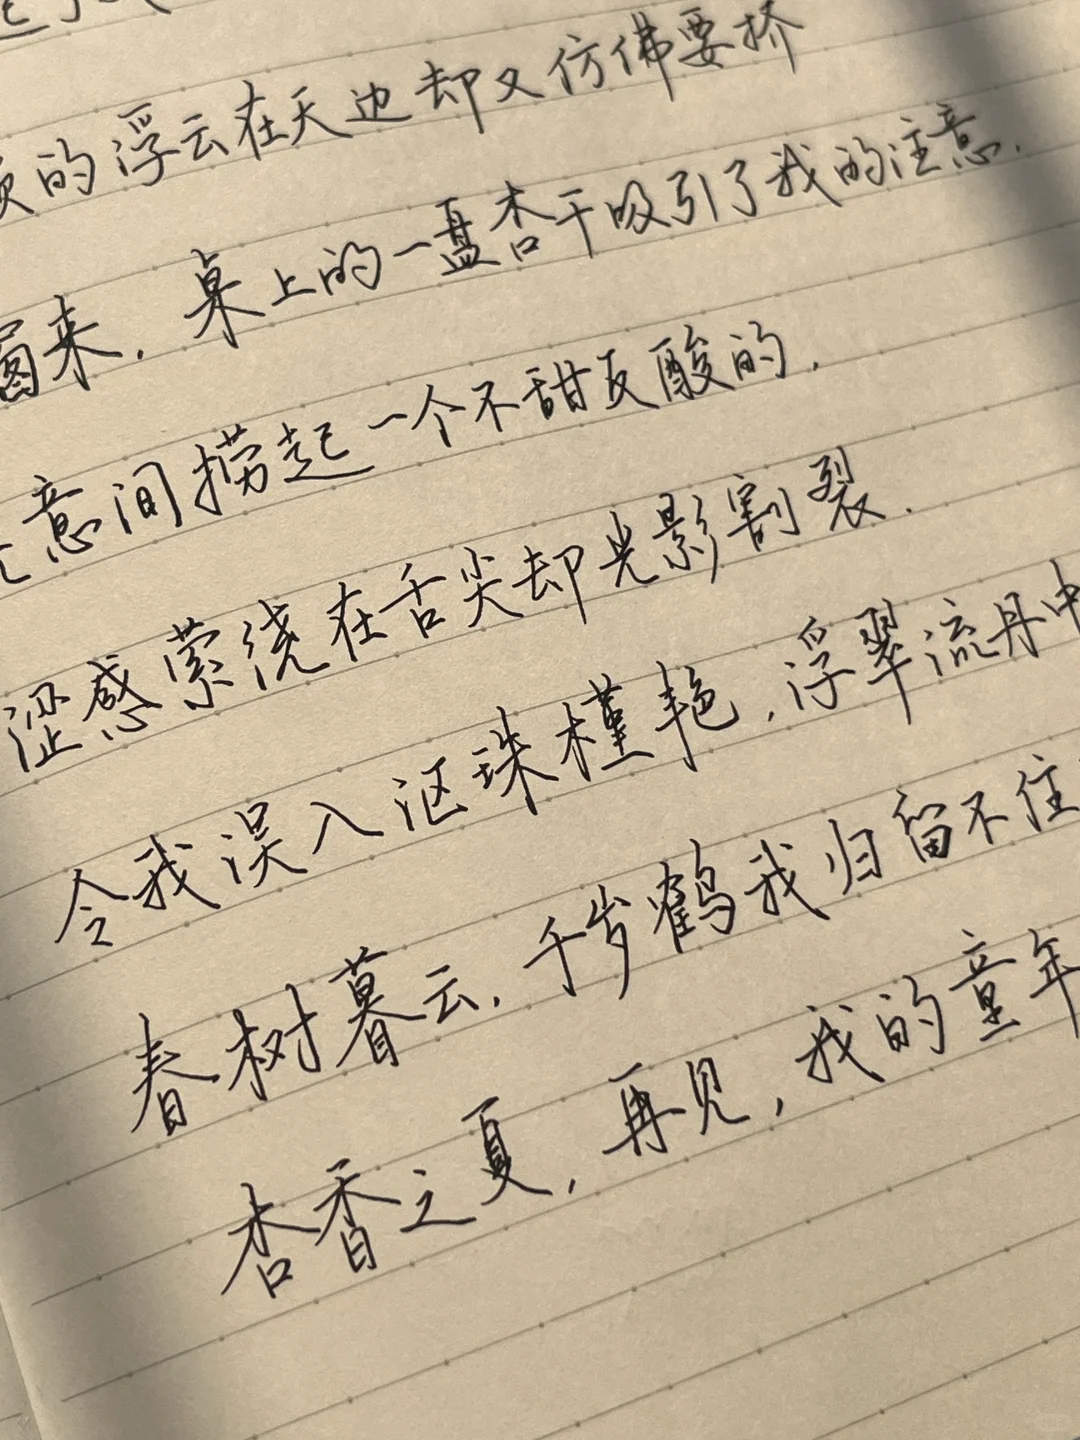 的浮云在天边却又仿佛要挤
图来，桌上的一盘杏干吸引了我的注意，
意间捞起一个不甜反酸的，
涩感萦绕在舌尖却光影割裂，
令我误入沤珠槿艳，浮翠流丹中
春树暮云，千岁鹤我归留不住
杏香之夏，再见，我的童年